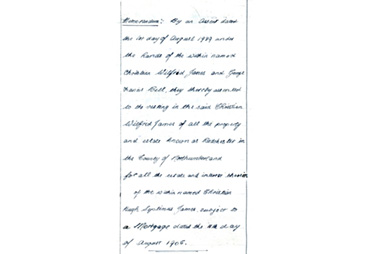 Memorandum: By an Assent dated
the 1st day of August 1929 under
the Hands of the within named
Christian Wilfrid James and George
Bell, they thereby assented
to the vesting in the said Christian
Wilfrid James of all the property
and estate known as Rochester in
the County of Northumberland
for all the estate and interest therein
of the within named Christian
Hugh James, subject to
a Mortgage dated the day
of August 1906.